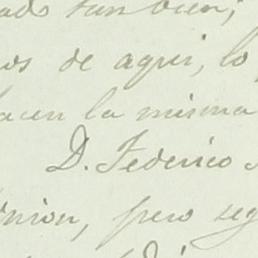 ado tan bien;
os de aqui, lo
acen la misma
D. Federico
inion, pero seg